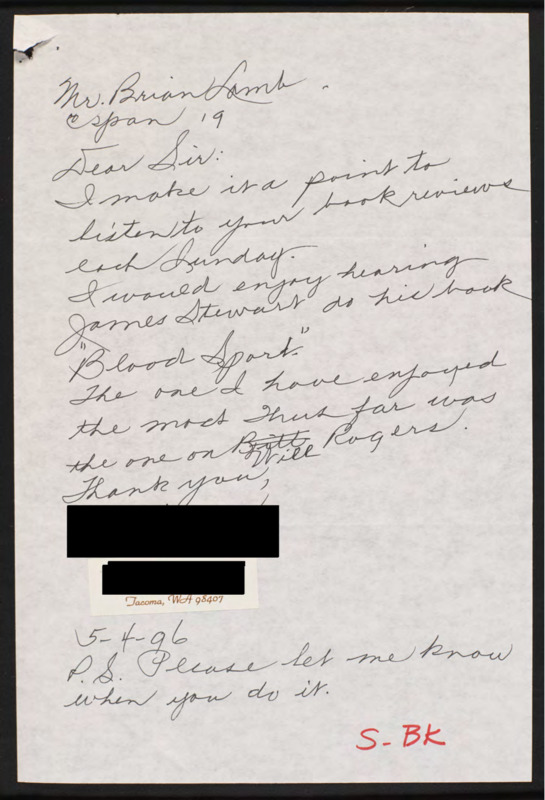 Mr. Brian Lamb
Cspan '19
Dear Sir:
I make it a point to
listen to your book reviews
each Sunday.
I would enjoy hearing
James Stewart do his book
"Blood Sport."
The one I have enjoyed
the most thus far was
the one on Will Rogers.
Thank you,
Tacoma, WA 98407
5-4-96
P.S. Please let me know
when you do it.
S-BK